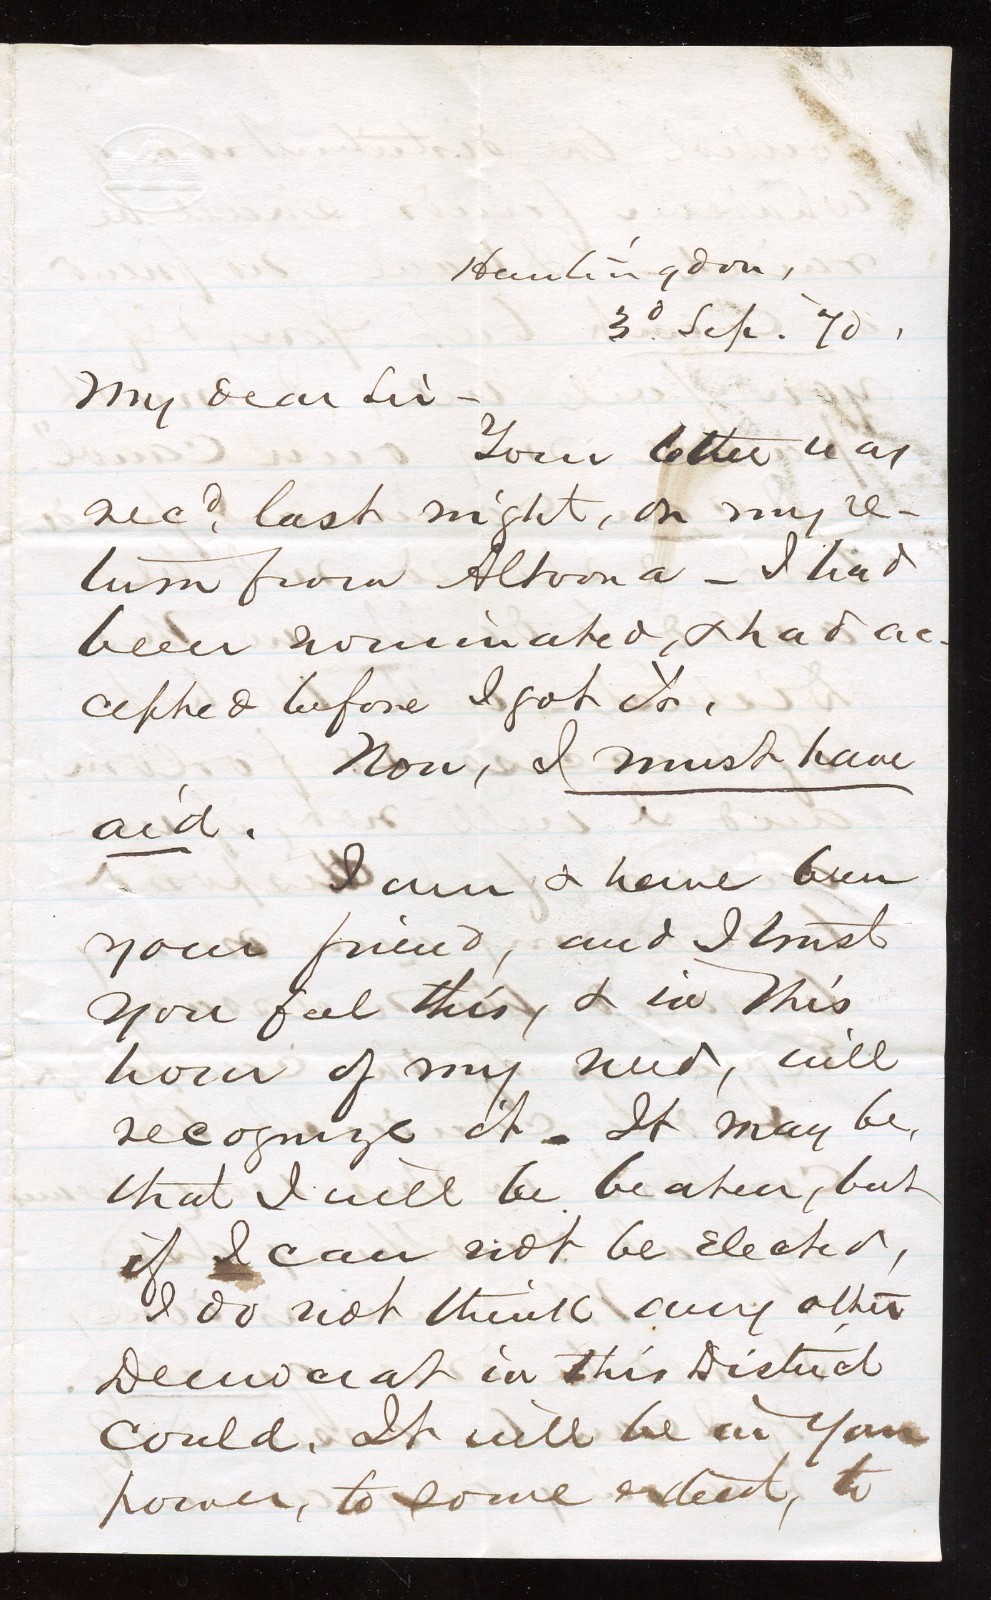 Huntingdon,
3d Sep. '70,
My dear Sir -
Your letter was
recd, last night, on my re-
turn from Altoona - I had
been nominated, & had ac-
cepted before I got it.
Now, I must have
aid.
I am & have been
your friend, and I trust
you feel this, & in this
hour of my need, will
recognize it. It may be,
that I will be beaten, but
if I can not be elected,
I do not think any other
Democrat in this District
could. It will be in your
power, to some extent, to